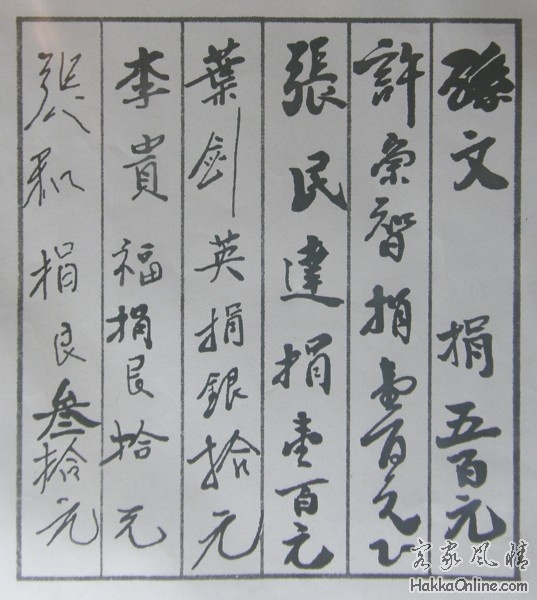 孫文 捐五百元
許崇智捐壹百元
張民達捐壹百元
葉劍英捐銀拾元
李貴福捐艮拾元
張 捐艮叁拾元
客家風情
HakkaOnline.com